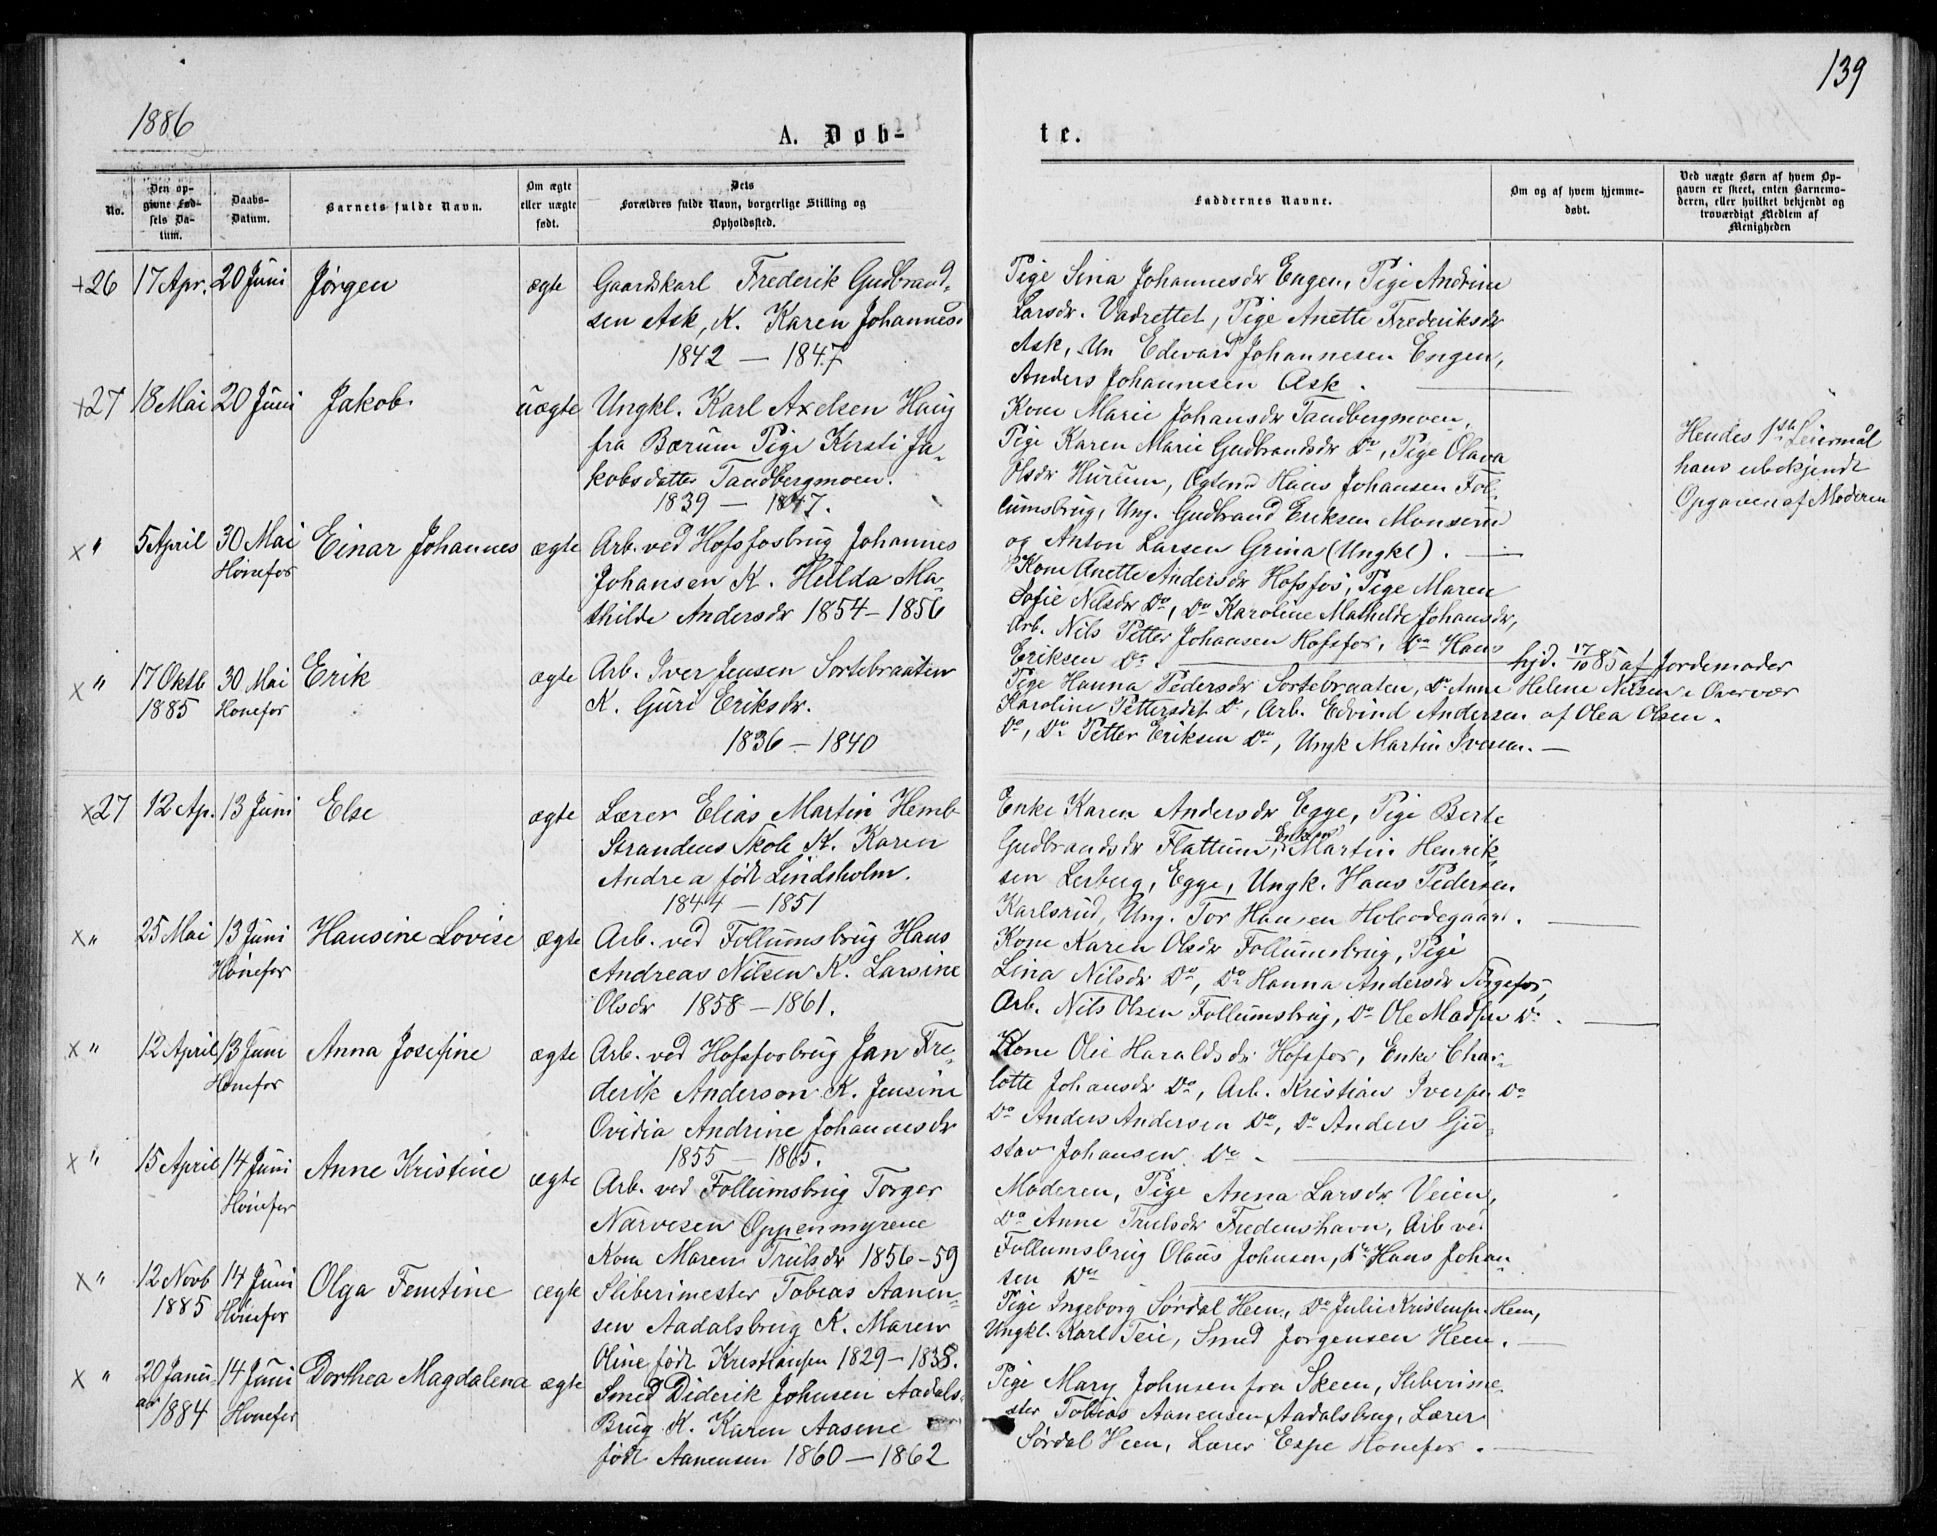 139
1886
A. Døb-
te.
No.
Den op-
givne Fød-
sels Da-
tum.
Daabs-
Datum.
Barnets fulde Navn.
Om ægte
eller uægte
født.
Dets
Forældres fulde Navn, borgerlige Stilling og
Opholdssted.
Faddernes Navne.
Om og af hvem hjemme-
døbt.
Ved uægte Børn af hvem Op-
gaven er skeet, enten Barnemo-
deren, eller hvilket bekjendt og
troværdigt Medlem af
Menigheden
+26 17 Apr. 20 Juni Jørgen ægte
Gaardskarl Frederik Gudbrand-
sen Ask, K. Karen Johannesd.
1842 — 1847
Pige Sina Johannesdr Engen, Pige Andrine
Larsdr. Vadrettet, Pige Anette Frederiksdr
Ask, Un Edevard Johannesen Engen,
Anders Johannesen Ask.
+27 18 Mai 20 Juni Jakob. uægte
Ungkl. Karl Axelsen Haug
fra Bærum Pige Kersti Ja-
kobsdatter Tandbergmoen.
1839 — 1847.
Kone Marie Johansdr Tandbergmoen,
Pige Karen Marie Gudbrandsdr Do, Pige Olava
Olsdr Hurum, Ægtem Hans Johansen Fol-
lumsbrug, Ung. Gudbrand Eriksen Monserud
og Anton Larsen Grina (Ungkl).
Hendes 1ste Leiermål
hans ubekjendt
Opgaven af Moderen
x " 5 April 30 Mai
Hønefos
Einar Johannes ægte
Arb. ved Hofsfosbrug Johannes
Johansen K. Hulda Ma-
thilde Andersdr 1854 — 1856
Kone Anette Andersdr Hofsfos, Pige Maren
Sofie Nilsdr Do, Do Karoline Mathilde Johansdr,
Arb. Nils Petter Johansen Hofsfos, Do Hans
Eriksen Do.
x " 17 Oktb 30 Mai Erik ægte
1885 Hønefos
Arb. Iver Jensen Sortebraaten
K. Guri Eriksdr.
1836 — 1840
Pige Hanna Pedersdr Sortebraaten, Do Anne
Karoline Pettersdat. Do, Arb. Edvind Andersen
Do, Do Petter Eriksen Do, Ungk Martin Iversen.
hjd. 17/10 85 af Jordemoder
Helene Nilsen i Overvær
af Olea Olsen.
x27 12 Ap. 13 Juni Else ægte
Lærer Elias Martin Hemb
Strandens Skole K. Karen
Andrea født Lindsholm.
1844 — 1851
Enke Karen Andersdr Egge, Pige Berte
Gudbrandsdr Flattum, Enkem Martin Henrik-
sen Lerberg, Egge, Ungk. Hans Pedersen
Karlsrud, Ung. Tor Hansen Holeodegaard.
x " 25 Mai 13 Juni
Hønefos
Hansine Lovise ægte
Arb. ved Follumsbrug Hans
Andreas Nilsen K. Larsine
Olsdr 1858 — 1861.
Kone Karen Olsdr Follumsbrug, Pige
Lina Nilsdr Do, Do Hanna Andersdr
Arb. Nils Olsen Follumsbrug, Do Ole Madsen Do.
x " 12 April 13 Juni
Hønefos
Anna Josefine ægte
Arb. ved Hofsfosbrug Jan Fre-
derik Anderson K. Jensine
Ovidia Andrine Johannesdr
1855 — 1865.
Kone Olie Haraldsdr Hofsfos, Enke Char-
lotte Johansdr Do, Arb. Kristian Iversen Do
Do Anders Andersen Do, Do Anders Gu-
stav Johansen Do.
x " 15 April 14 Juni
Hønefos
Anne Kristine ægte
Arb. ved Follumsbrug Torger
Narvesen Oppenmyrene
Kone Maren Trulsdr 1856 — 59
Moderen, Pige Anna Larsdr Veien,
Do Anne Trulsdr Fredenshavn, Arb ved
Follumsbrug Olaus Johnsen, Do Hans Johan-
sen Do
x " 12 Novb 14 Juni
1885 Hønefos
Olga Femtine ægte
Sliberimester Tobias Aanen-
sen Aadalsbrug K. Maren
Oline født Kristiansen 1829 — 1838.
Pige Ingeborg Sørdal Heen, Do Julie Kristensen Heen,
Ungkl. Karl Teie, Smed Jorgensen Heen.
x " 20 Janu- 14 Juni
ar 1884 Hønefos
Dorthea Magdalena ægte
Smed Diderik Johnsen Aadals-
Brug K. Karen Aasine
født Aanensen 1860 — 1862
Pige Mary Johnsen fra Skeen, Sliberime-
ster Tobias Aanensen Aadalsbrug, Lærer
Sørdal Heen, Lærer Espe Hønefos.